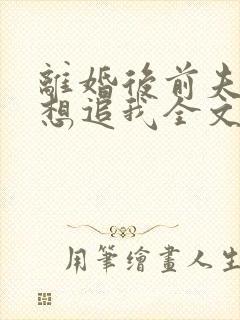 離婚後前夫
想追我全文
用筆繪畫人生